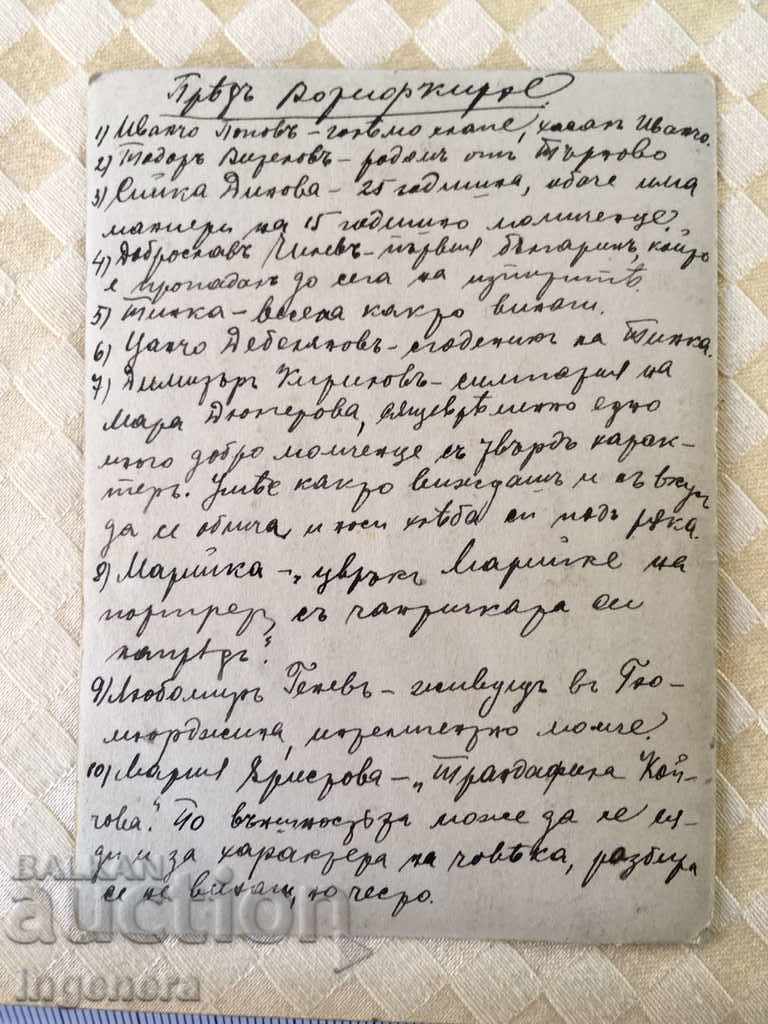 Прѣдъ
1) Иванчо Поповъ – голѣмо Иванчо.
2) Тодоръ – родомъ отъ Търново
3) Сийка Динова – 25 годишна, обаче има
маниери на 15 годишно момиченце.
4) Доброславъ – първия българинъ, който
е пропадалъ до сега на изпититѣ.
5) Тинка – весела както винаги.
6) Цанчо Дебеляновъ – годеникъ на Тинка.
7) Димитъръ Кириловъ – симпатия на
Мара Дюлгерова, сящеврѣменно едно
много добро момченце съ твърдъ харак-
теръ. Умѣе както виждашъ и съ вкусъ
да се облича, и носи хлѣба си подъ рѫка.
8) Марийка – „цвръкъ Марийке на
портрет съ чантичката си
напрѣдъ“.
9) Любомиръ Геневъ – живущъ въ Гю-
мюрджина, интелигентно момче.
10) Мария Христова – „Трандафила Кой-
чова“. По външностьта може да се сѫ-
ди и за характера на човѣка, разбира
се не винаги, но често.
BALKAN
auction
Ingenera